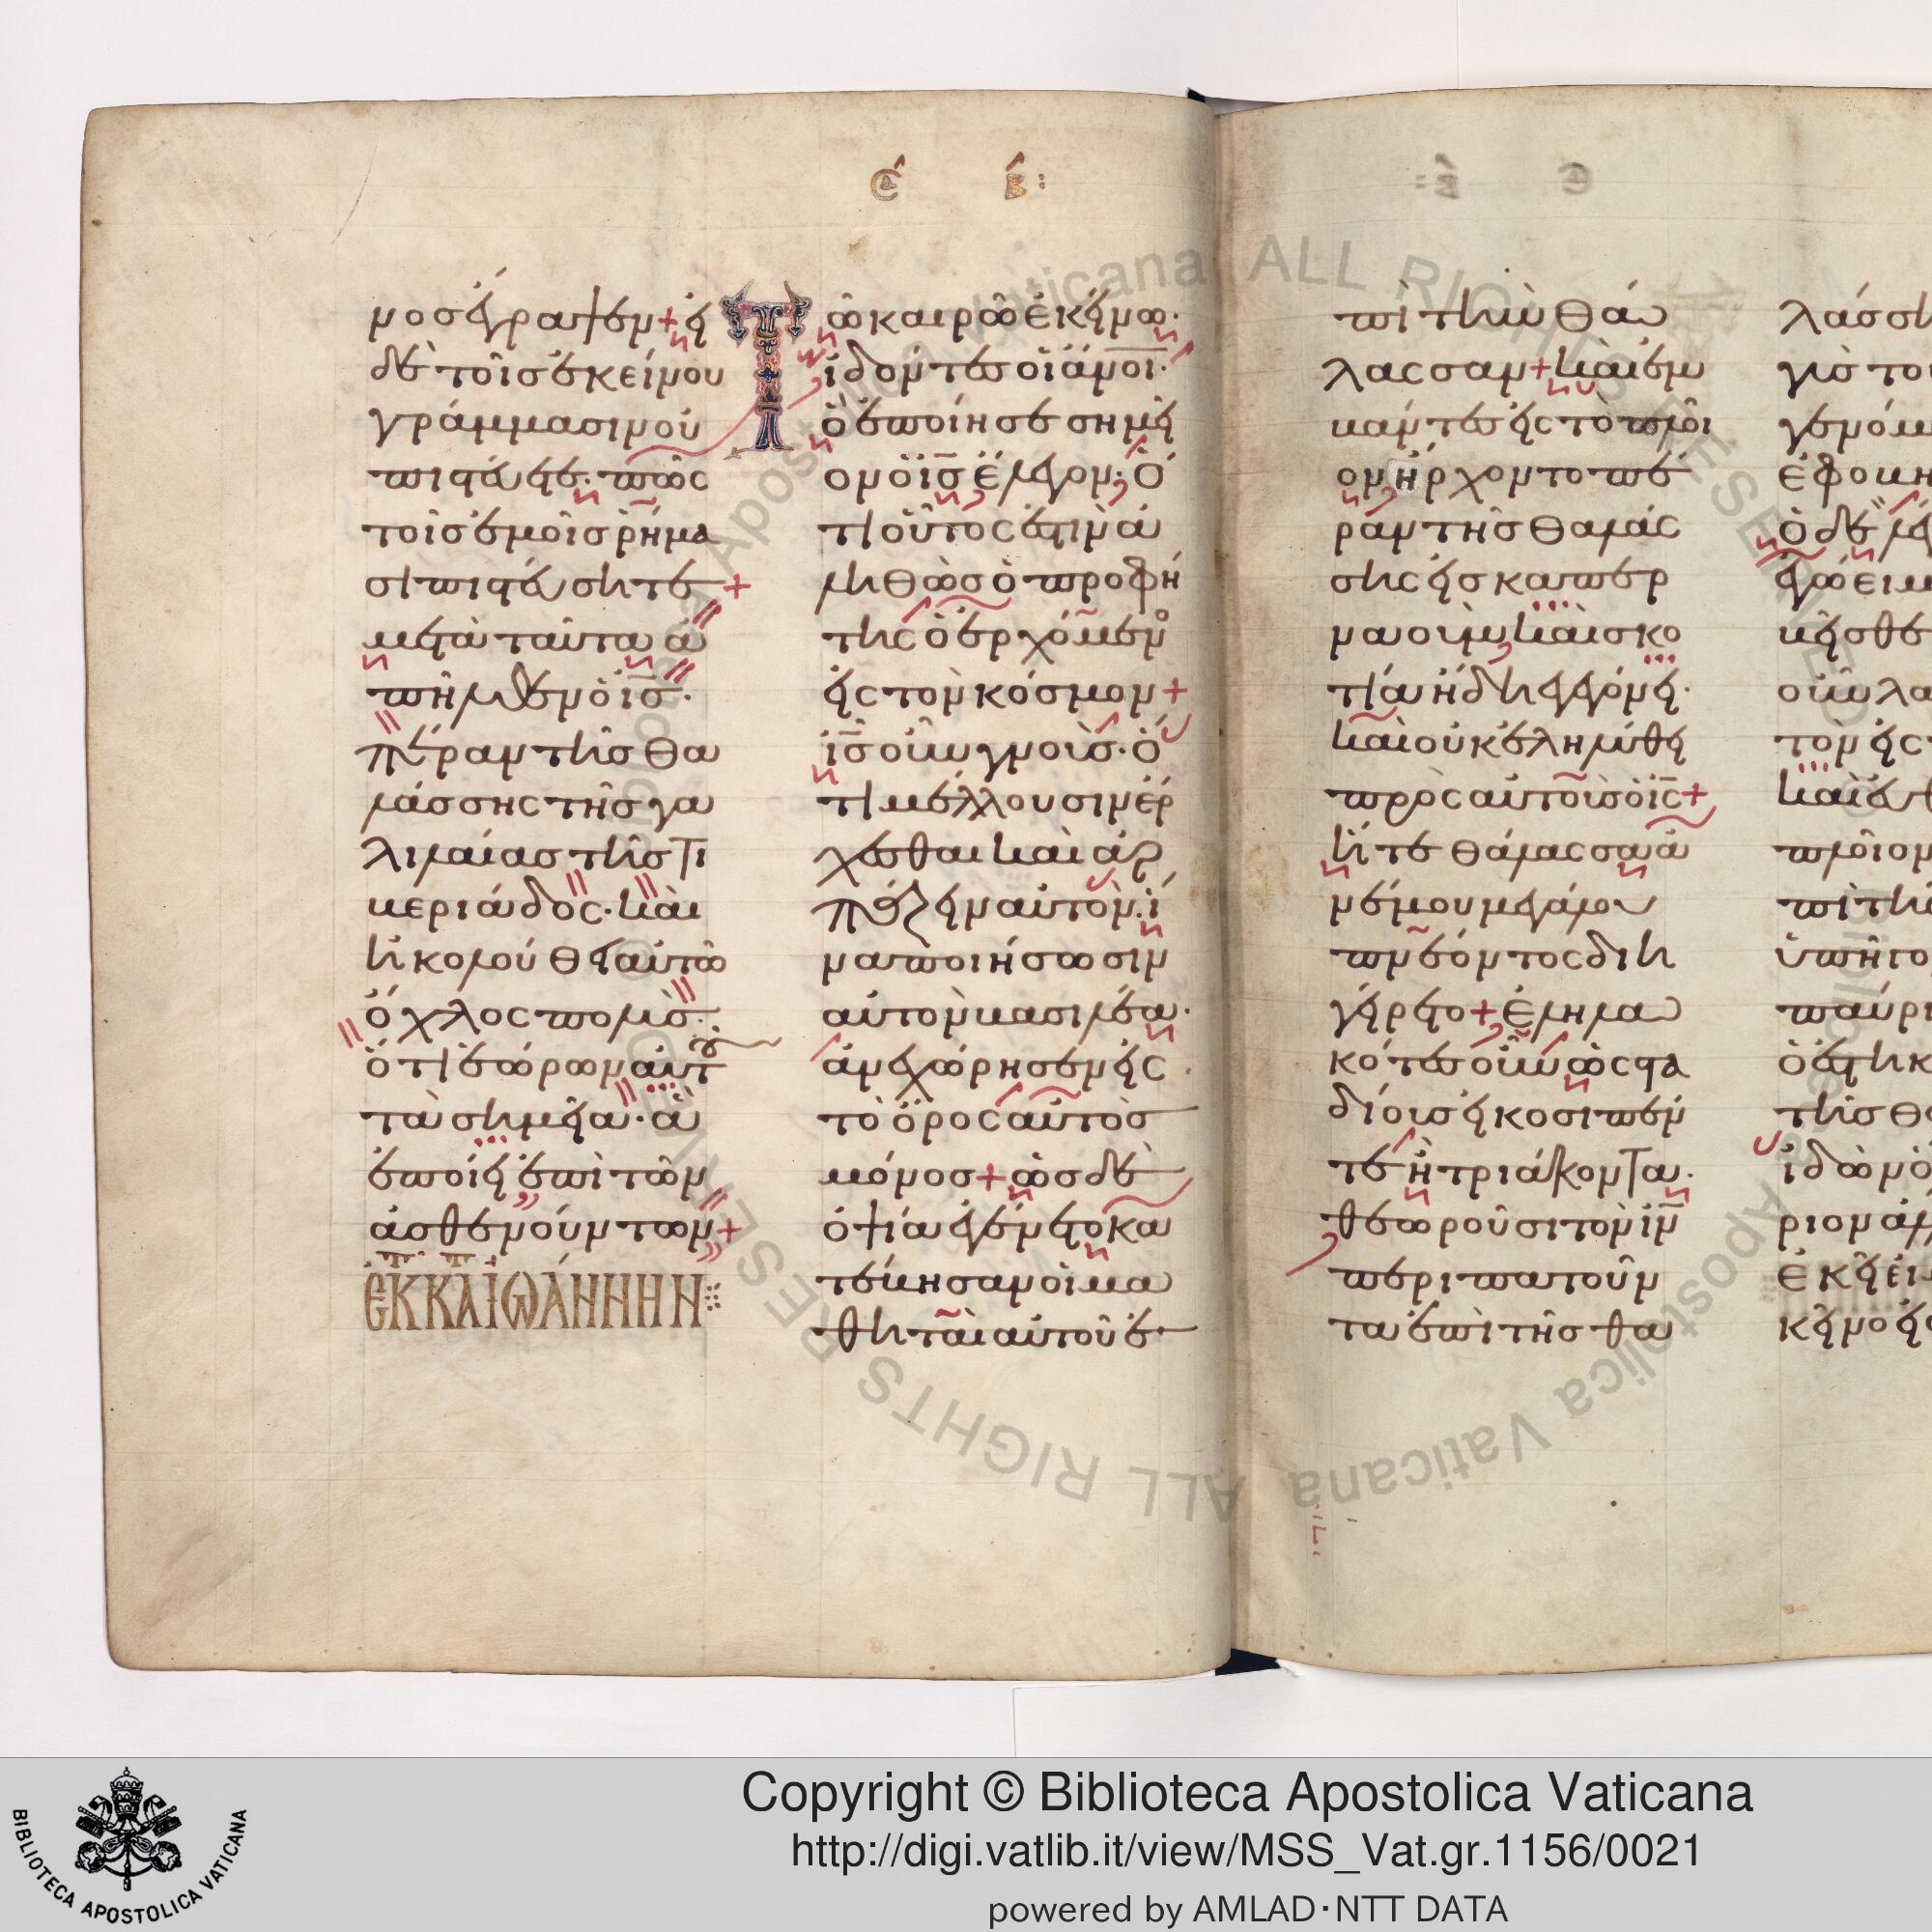 Ϲ Ε:
νοσέγραψεν+εἰ
δὲ τοῖσ ἐκείνου
γράμμασι νού
πιστεύετε· πῶς
τοῖσ ἐμοῖσ ῥήμα
σι πιστεύσητε+
μετὰ ταῦτα ἀ
πῆλθεν ὁ ισ·
πέραν τῆσ θα
λάσσης τῆσ γα
λιλαίασ τῆσ Τι
βεριάδος· καὶ
ἠκολούθει αὐτῶ
ὄχλος πολὺσ·
ὅτι ἐώρων αὐτοῦ
τὰ σημεῖα· ἃ
ἐποίει ἐπὶ τῶν
ἀσθενούντων+
ἐκ κατ ἰωάννην
Τῶ καιρῶ ἐκείνω·
ἰδόντεσ οἱ ανοι·
ὃ ἐποίησε σημεῖ
ον ὁ ισ ἔλεγον· ὅ
τι οὗτος ἐστιν ἀ
ληθῶσ ὁ προφή
της ὁ ἐρχόμενο
εἰς τὸν κόσμον+
ισ οὖν γνοὺσ· ὅ
τι μέλλουσιν ἔρ
χεσθαι καὶ ἁρ
πάζειν αὐτὸν· ἵ
να ποιήσωσιν
αὐτὸν βασιλέα·
ἀνεχώρησεν εἰς
τὸ ὄρος αὐτὸσ
μόνοσ+ ὡσ δὲ
ὀψία ἐγένετο κα
τέβησαν οἱ μα
θηταὶ αὐτοῦ ἐ
πὶ τὴν θά
λασσαν+ καὶ ἐμ
βάντεσ εἰς τὸ πλοῖ
ον ἤρχοντο πέ
ραν τῆσ θαλάς
σης εἰσ καπερ
ναούμ· καὶ σκο
τία ἤδη ἐγεγόνει·
καὶ οὐκ ἐληλύθει
πρὸς αὐτοὺσ ὁ ις+
ἥ τε θάλασσα ἀ
νέμου μεγάλου
πνέοντος διη
γείρετο+ ἐληλα
κότεσ οὖν ὡς στα
δίουσ εἰκοσιπέν
τε ἢ τριάκοντα·
θεωροῦσι τὸν ιν
περιπατοῦν
τα ἐπὶ τῆσ θα
λάσση
γὺσ το
γενόμ
ἐφοβή
ὁ δὲ λέ
ἐγώ εἰμ
βεῖσθε
οὖν λα
τὸν εἰς
καὶ
πλοῖον
πὶ τὴ
ὑπῆγο
παύρι
ὁ ἑστηκ
τῆσ θα
ἰδὼν ὁ
ριον ἄλ
ἐκεῖ εἰ
κεῖνο εἰ
ALL RIGHTS RESERVED Biblioteca Apostolica Vaticana
ALL RIGHTS RESERVED Biblioteca Apostolica Vaticana
BIBLIOTECA APOSTOLICA VATICANA
Copyright © Biblioteca Apostolica Vaticana
http://digi.vatlib.it/view/MSS_Vat.gr.1156/0021
powered by AMLAD·NTT DATA